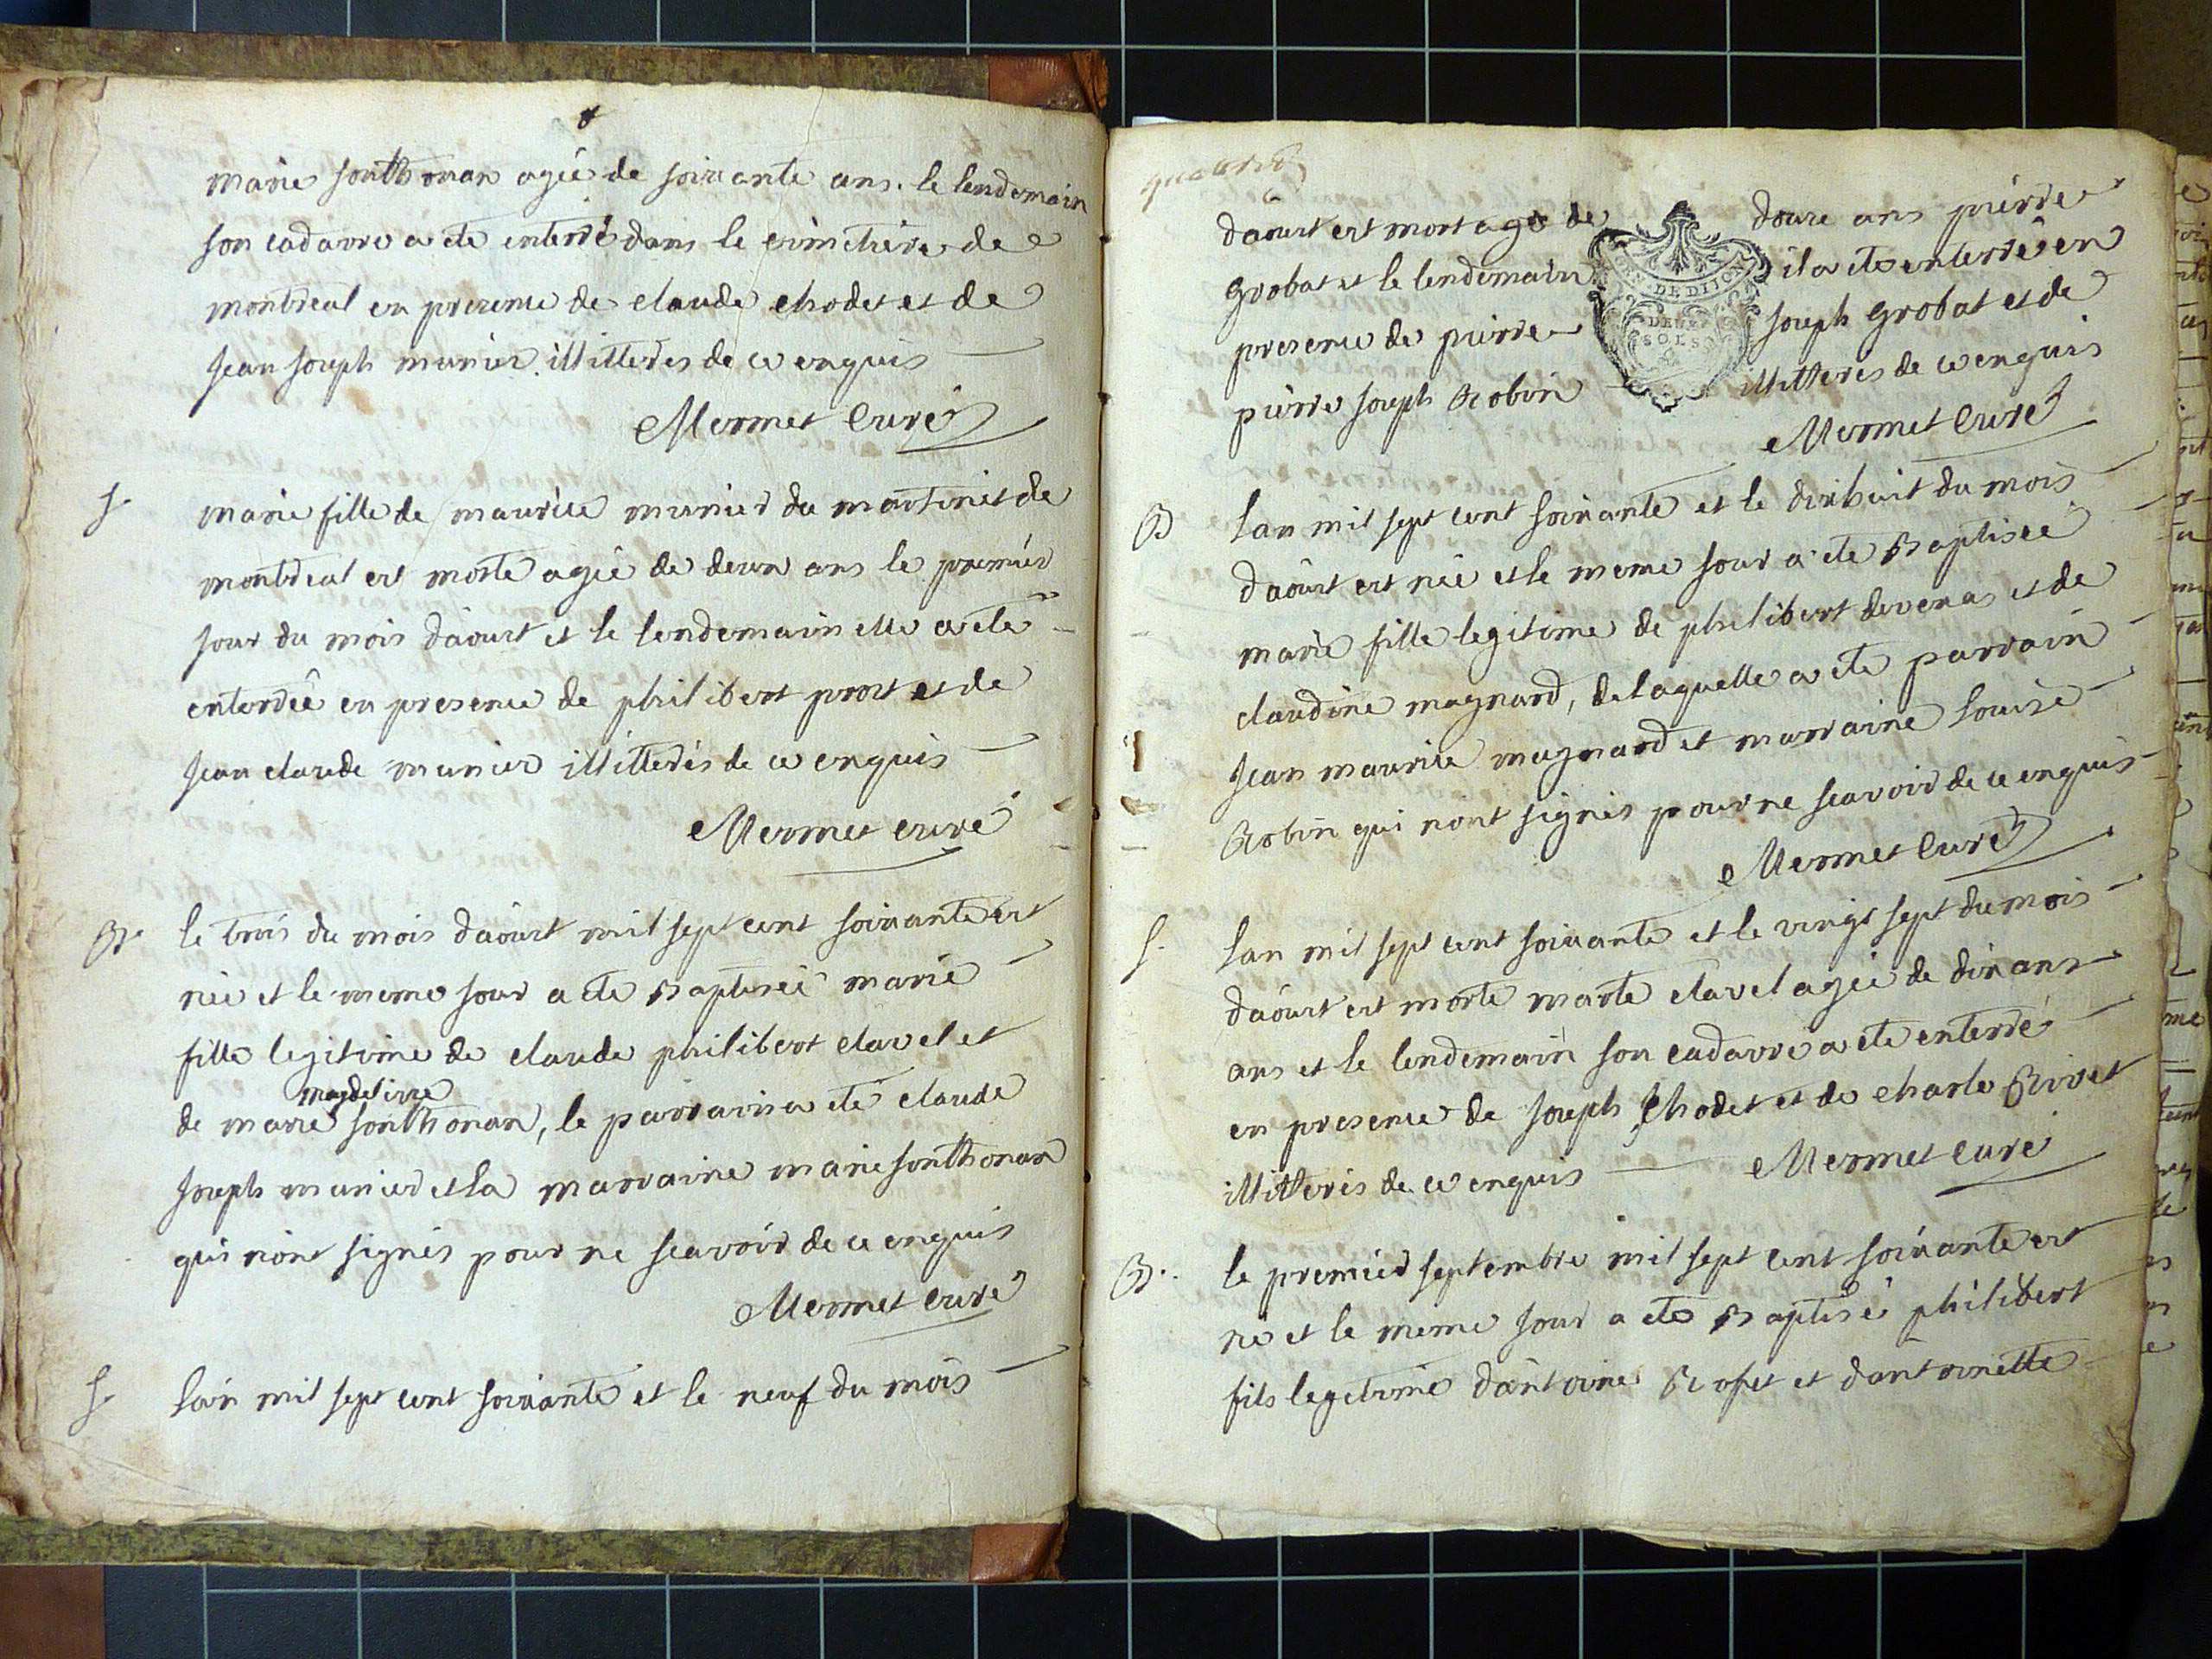 marie sonthonan agée de soixante ans. le lendemain
son cadavre a ete enterré dans le cimetiere de
montreal en presence de claude chodet et de
jean joseph munier illitteres de ce enquis
Mermet Curé
S. marie fille de maurice munier du martinet de
montreal est morte agée de deux ans le premier
jour du mois daoust et le lendemain elle a ete
enterrée en presence de philibert prost et de
jean claude munier illitterés de ce enquis
Mermet curé
B. le trois du mois daoust mil sept cent soixante est
née et le meme jour a ete Baptisée marie
fille legitime de claude philibert clavel et
magdelinne
de marie sonthonan, le parrain a eté claude
joseph munier et la marraine marie sonthonan
qui nont signés pour ne scavoir de ce enquis
Mermet curé
S. lan mil sept cent soixante et le neuf du mois
quatre
daoust est mort agé de douze ans pierre
grobat et le lendemain il a ete enterré en
presence de pierre joseph grobat et de
pierre joseph Robin illitterés de ce enquis
GEN. DE DIJON
DEUX
SOLS
Mermet Curé
B lan mil sept cent soixante et le dixhuit du mois
daoust est née et le meme jour a ete Baptisée
marie fille legitime de philibert devenas et de
claudine magnard, de laquelle a ete parrain
jean maurice magnard et marraine louise
Robin qui nont signés pour ne scavoir de ce enquis
Mermet Curé
S. lan mil sept cent soixante et le vingt sept du mois
daoust est morte marte clavel agée de dix ans
ans et le lendemain son cadavre a ete enterré
en presence de joseph Chodet et de charle Rivet
illitterés de ce enquis Mermet curé
B. le premier septembre mil sept cent soixante est
né et le meme jour a ete Baptisé philibert
fils legitime dantoine Rofet et dantoinette